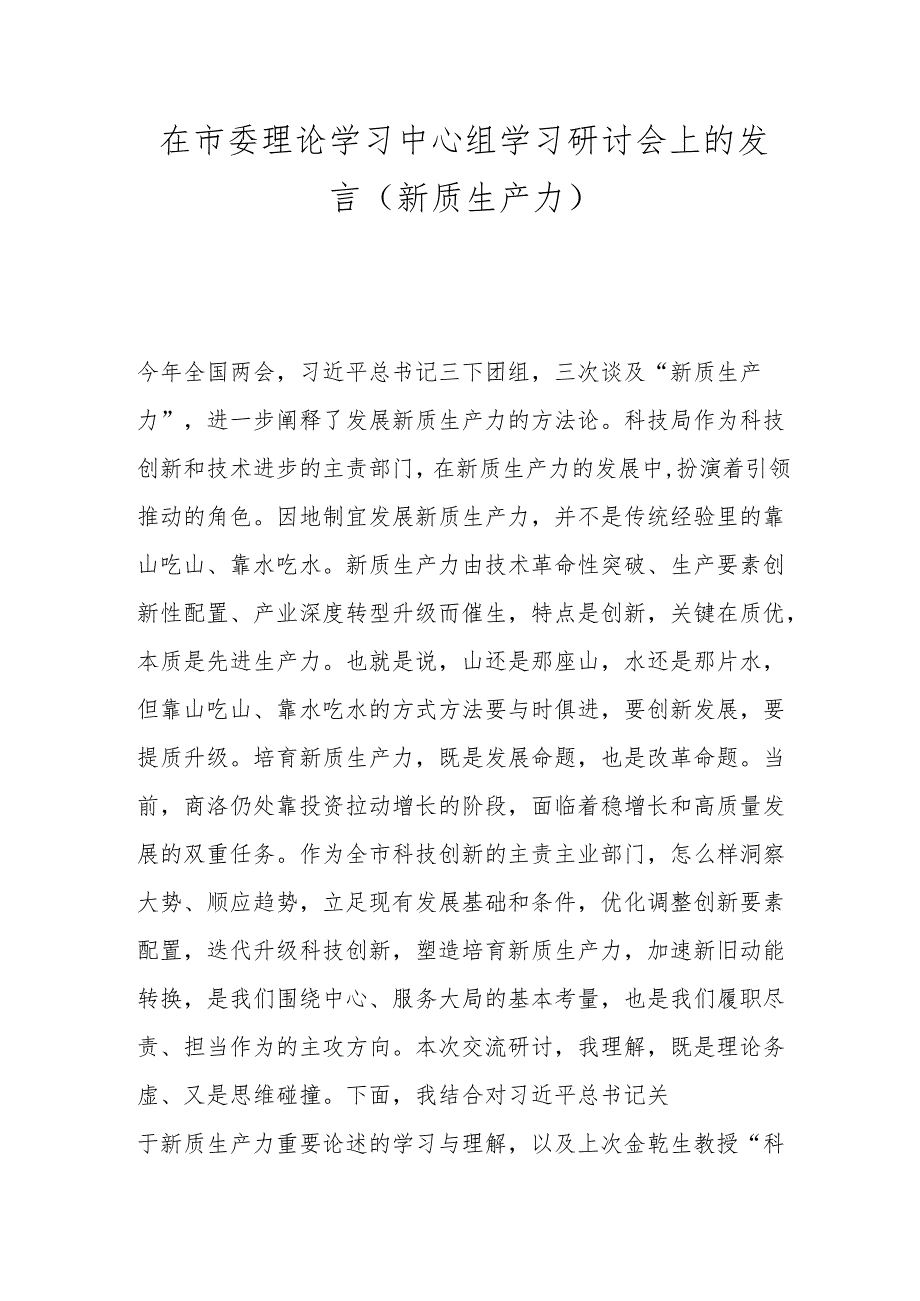 在市委理论学习中心组学习研讨会上的发
言（新质生产力）
今年全国两会，习近平总书记三下团组，三次谈及“新质生产
力”，进一步阐释了发展新质生产力的方法论。科技局作为科技
创新和技术进步的主责部门，在新质生产力的发展中,扮演着引领
推动的角色。因地制宜发展新质生产力，并不是传统经验里的靠
山吃山、靠水吃水。新质生产力由技术革命性突破、生产要素创
新性配置、产业深度转型升级而催生，特点是创新，关键在质优，
本质是先进生产力。也就是说，山还是那座山，水还是那片水，
但靠山吃山、靠水吃水的方式方法要与时俱进，要创新发展，要
提质升级。培育新质生产力，既是发展命题，也是改革命题。当
前，商洛仍处靠投资拉动增长的阶段，面临着稳增长和高质量发
展的双重任务。作为全市科技创新的主责主业部门，怎么样洞察
大势、顺应趋势，立足现有发展基础和条件，优化调整创新要素
配置，迭代升级科技创新，塑造培育新质生产力，加速新旧动能
转换，是我们围绕中心、服务大局的基本考量，也是我们履职尽
责、担当作为的主攻方向。本次交流研讨，我理解，既是理论务
虚、又是思维碰撞。下面，我结合对习近平总书记关
于新质生产力重要论述的学习与理解，以及上次金乾生教授“科